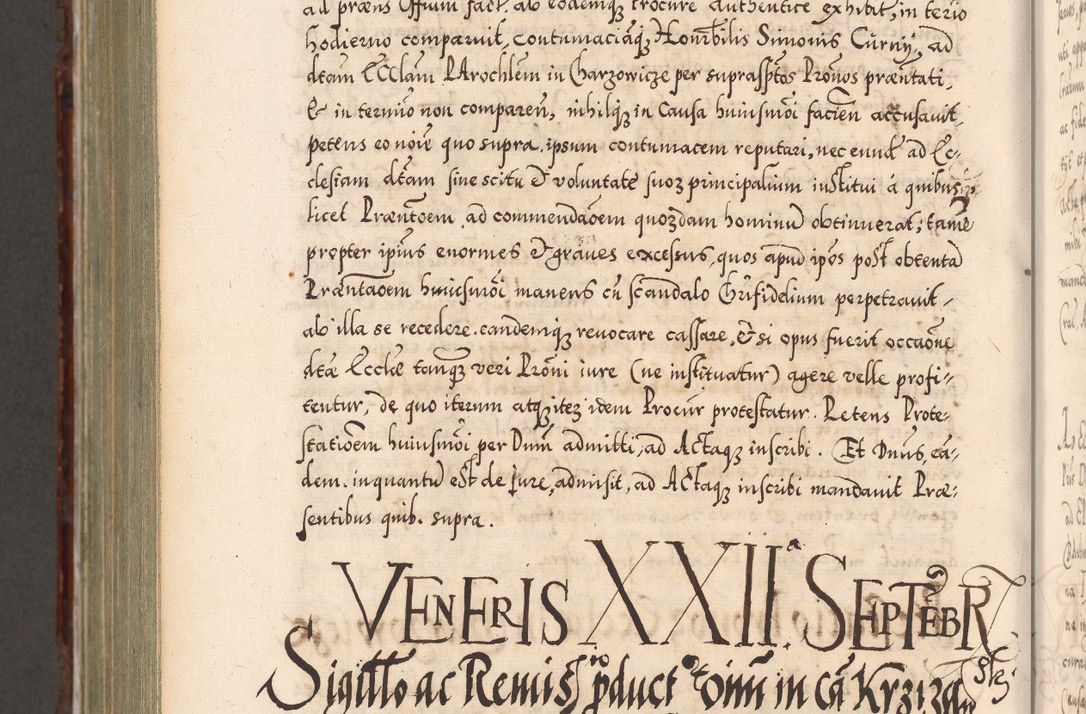 ad præns Offium fact. ab eodemq₃ Procure Authentice exhibit, in terio
hodierno comparuit, contumaciaq₃ Honrbilis Simonis Curny, ad
dtam Ecclam PArochlem in Charzowicze per suprasptos Pronos præntati,
& in termio non comparen, nihilq₃ in Causa huiusmoi facien accusavit,
petens eo noie quo supra, ipsum contumacem reputari, nec eund ad Ec-
clesiam dtam sine scitu & voluntate suoꝝ principalium institui á quibus
licet Præntoem ad commendaoem quoꝝdam hominu obtinuerat; tame
propter ipius enormes & graves excessus, quos apud ipos post obtenta
Præntaoem huiusmoi manens cu scandalo Chrifidelium perpetravit,
ab illa se recedere, eandemq₃ revocare cassare, & si opus fuerit occaone
dtæ Ecclæ tanq₃ veri Proni iure (ne instituatur) agere velle profi-
tentur, de quo iterum atq₃ iteꝝ idem Procur protestatur. Petens Prote-
stationem huiusmoi per Dnum admitti, ad Actaq₃ inscribi. Et Dnus, ea-
dem, inquantu est de jure, admisit, ad Actaq₃ inscribi mandavit Præ-
sentibus quib. supra.
VENERIS XXII.ᵃ SEPTEBR
Sigillo ac Remiss. pduct oim in Ca Krziza